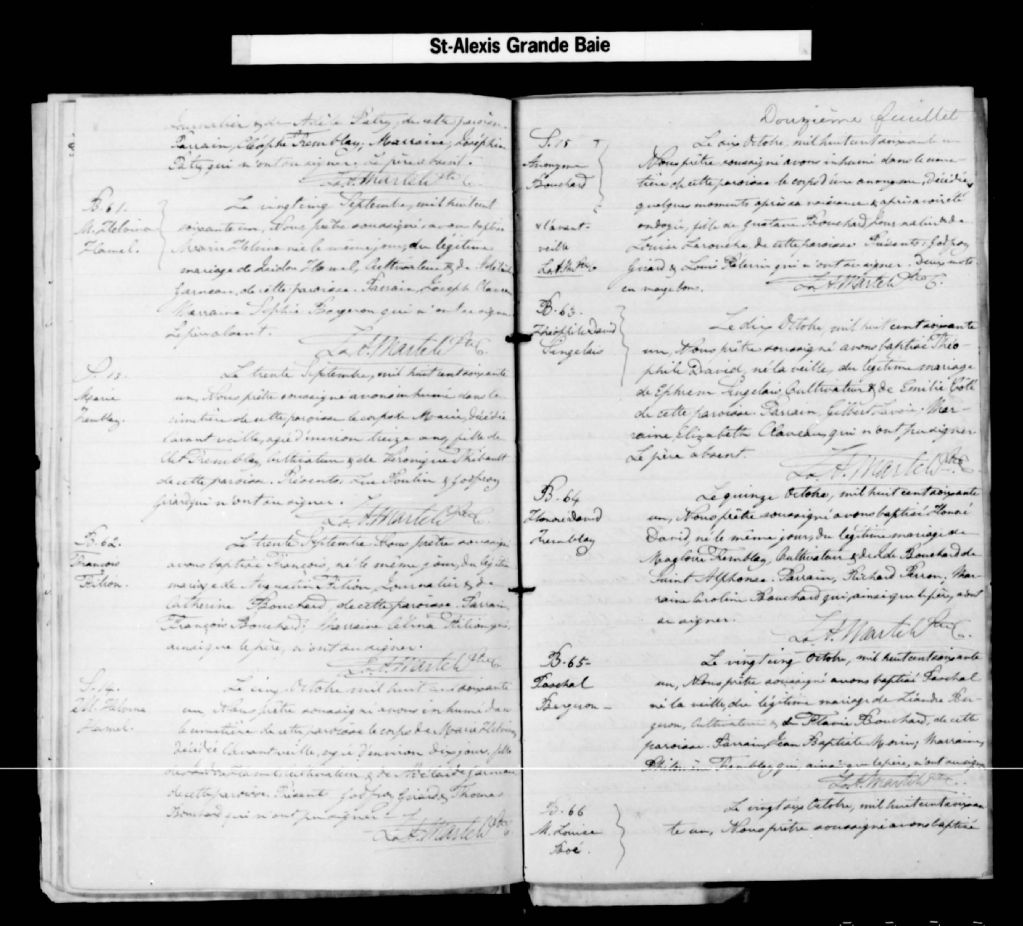 St-Alexis Grande Baie
Journalier & de Adèle Patry, de cette paroisse.
Parrain, Cléophe Tremblay, Marraine, Joséphine
Patry qui n'ont su signer. Le père absent.
Ls A. Martel Ptre
B. 61.
M. Heloïse
Hamel.
Le vingt cinq Septembre, mil huit cent
soixante un, Nous prêtre soussigné, avons baptisé
née le même jour, du légitime
mariage de Hamel, Cultivateur & de
Garneau, de cette paroisse. Parrain, Joseph
Marraine Sophie Bergeron qui n'ont su signer
Le père absent.
Ls A. Martel Ptre
S. 13.
Marie
Tremblay.
Le trente Septembre, mil huit cent soixante
un, Nous prêtre soussigné avons inhumé dans le
cimetière de cette paroisse le corps de Marie, décédée
l'avant veille, agée d'environ treize ans, fille de
Tremblay, Cultivateur & de Véronique Thibault
de cette paroisse. Présents, Luc Poulin & Godfroy
Girard qui n'ont su signer.
Ls A. Martel Ptre
B. 62.
François
Filion.
Le trente Septembre Nous prêtre soussigné
avons baptisé François, né le même jour, du légitime
mariage de Filion, Journalier & de
Catherine Bouchard, de cette paroisse. Parrain
François Bouchard; Marraine Célina Filion qui,
ainsi que le père, n'ont su signer.
Ls A. Martel Ptre
S. 14.
Hamel.
Le cinq Octobre mil huit cent soixante
un, Nous prêtre soussigné avons inhumé dans
le cimetière de cette paroisse le corps de Marie
décédée l'avant veille, agée d'environ dix jours, fille
de Hamel, Cultivateur, & de Adélaïde Garneau
de cette paroisse. Présents Godfroy Girard & Thomas
Bouchard qui n'ont pu signer.
Ls A. Martel Ptre
Douzième feuillet
S. 15
Anonyme
Bouchard
Le six Octobre, mil huit cent soixante un
Nous prêtre soussigné avons inhumé dans le cime-
tière de cette paroisse le corps d'une anonyme, décédée
quelques moments après sa naissance & après avoir été
ondoyée, fille de Gustave Bouchard Journalier & de
Louise Larouche, de cette paroisse. Présents: Godfroy
Girard & Louis Pelerin qui n'ont su signer. Deux mots
en marge bons.
Ls A. Martel Ptre
& l'avant-
veille
Ls A. M. Ptre
B. 63.
Théophile David
Singelais
Le dix Octobre, mil huit cent soixante
un, Nous prêtre soussigné avons baptisé Théo-
phile David, né la veille, du légitime mariage
de Ephrem Singelais, Cultivateur & de Emilie Coté
de cette paroisse. Parrain, Gilbert Lavoie. Mar-
raine, Elizabeth Claveau, qui n'ont pu signer
Le père absent.
Ls A. Martel Ptre
B. 64
Honoré David
Tremblay
Le quinze Octobre, mil huit cent soixante
un, Nous prêtre soussigné avons baptisé Honoré
David, né le même jour, du légitime mariage de
Magloire Tremblay, Cultivateur & de Bouchard de
Saint Alphonse. Parrain, Richard Perron. Mar-
raine Caroline Bouchard qui, ainsi que le père, n'ont
su signer.
Ls A. Martel Ptre
B. 65-
Paschal
Bergeron-
Le vingt cinq Octobre, mil huit cent soixante
un, Nous prêtre soussigné avons baptisé Paschal
né la veille, du légitime mariage de Liandre Ber-
geron, Cultivateur & de Flavie Bouchard, de cette
paroisse. Parrain, Jean Baptiste Morin; Marraine,
Tremblay qui, ainsi que le père, n'ont su signer
Ls A. Martel Ptre
B. 66
M. Louise
Le vingt six Octobre, mil huit cent soixan-
te un, Nous prêtre soussigné avons baptisé